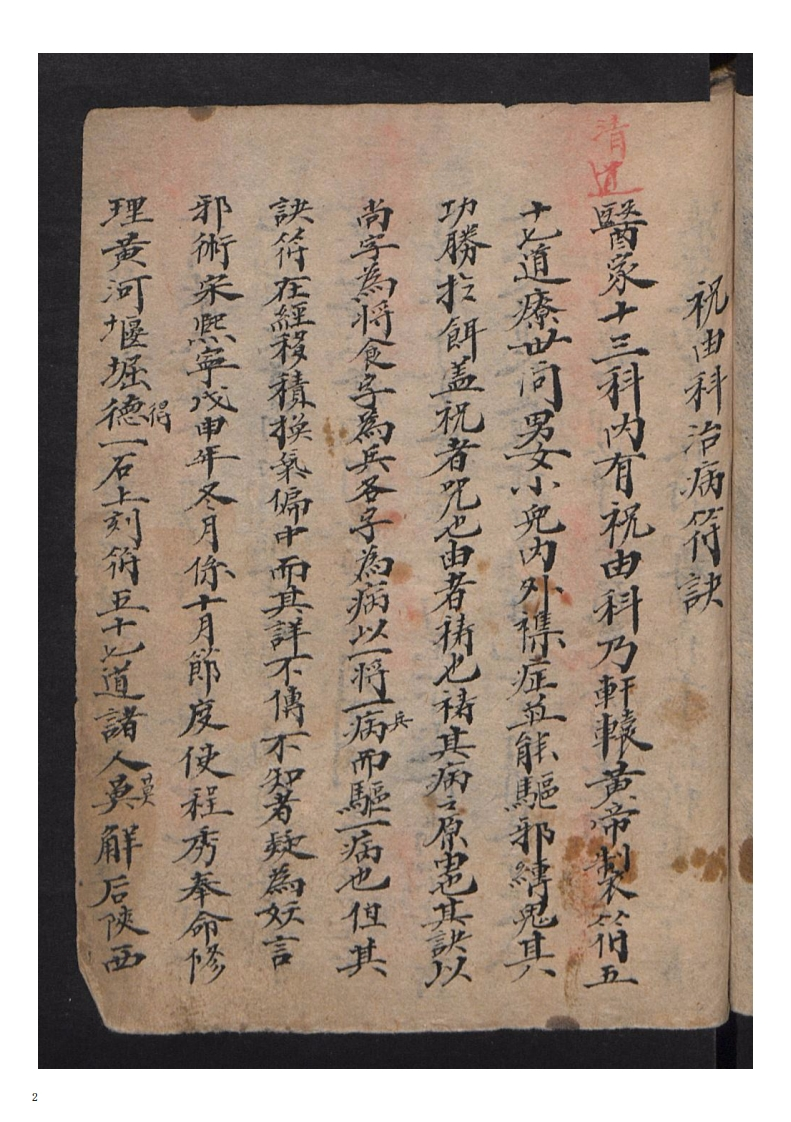 祝由科治病符訣
清道
醫家十三科内有祝由科乃軒轅黄帝製符五
十七道療世间男女小兒内外襍症並能驅邪縛鬼其
功勝扵餌盖祝者咒也由者禱也禱其病之原由也其訣以
尚字為将食字為兵各字為病以一将一病兵而驅一病也但其
訣符在經移積换氣偏中而其詳不傳不知者疑為妖言
邪術宋熈寧戊申年冬月份十月節度使程秀奉命修
理黄河堰堀德得一石上刻符五十七道諸人莫莫解后陝西
2